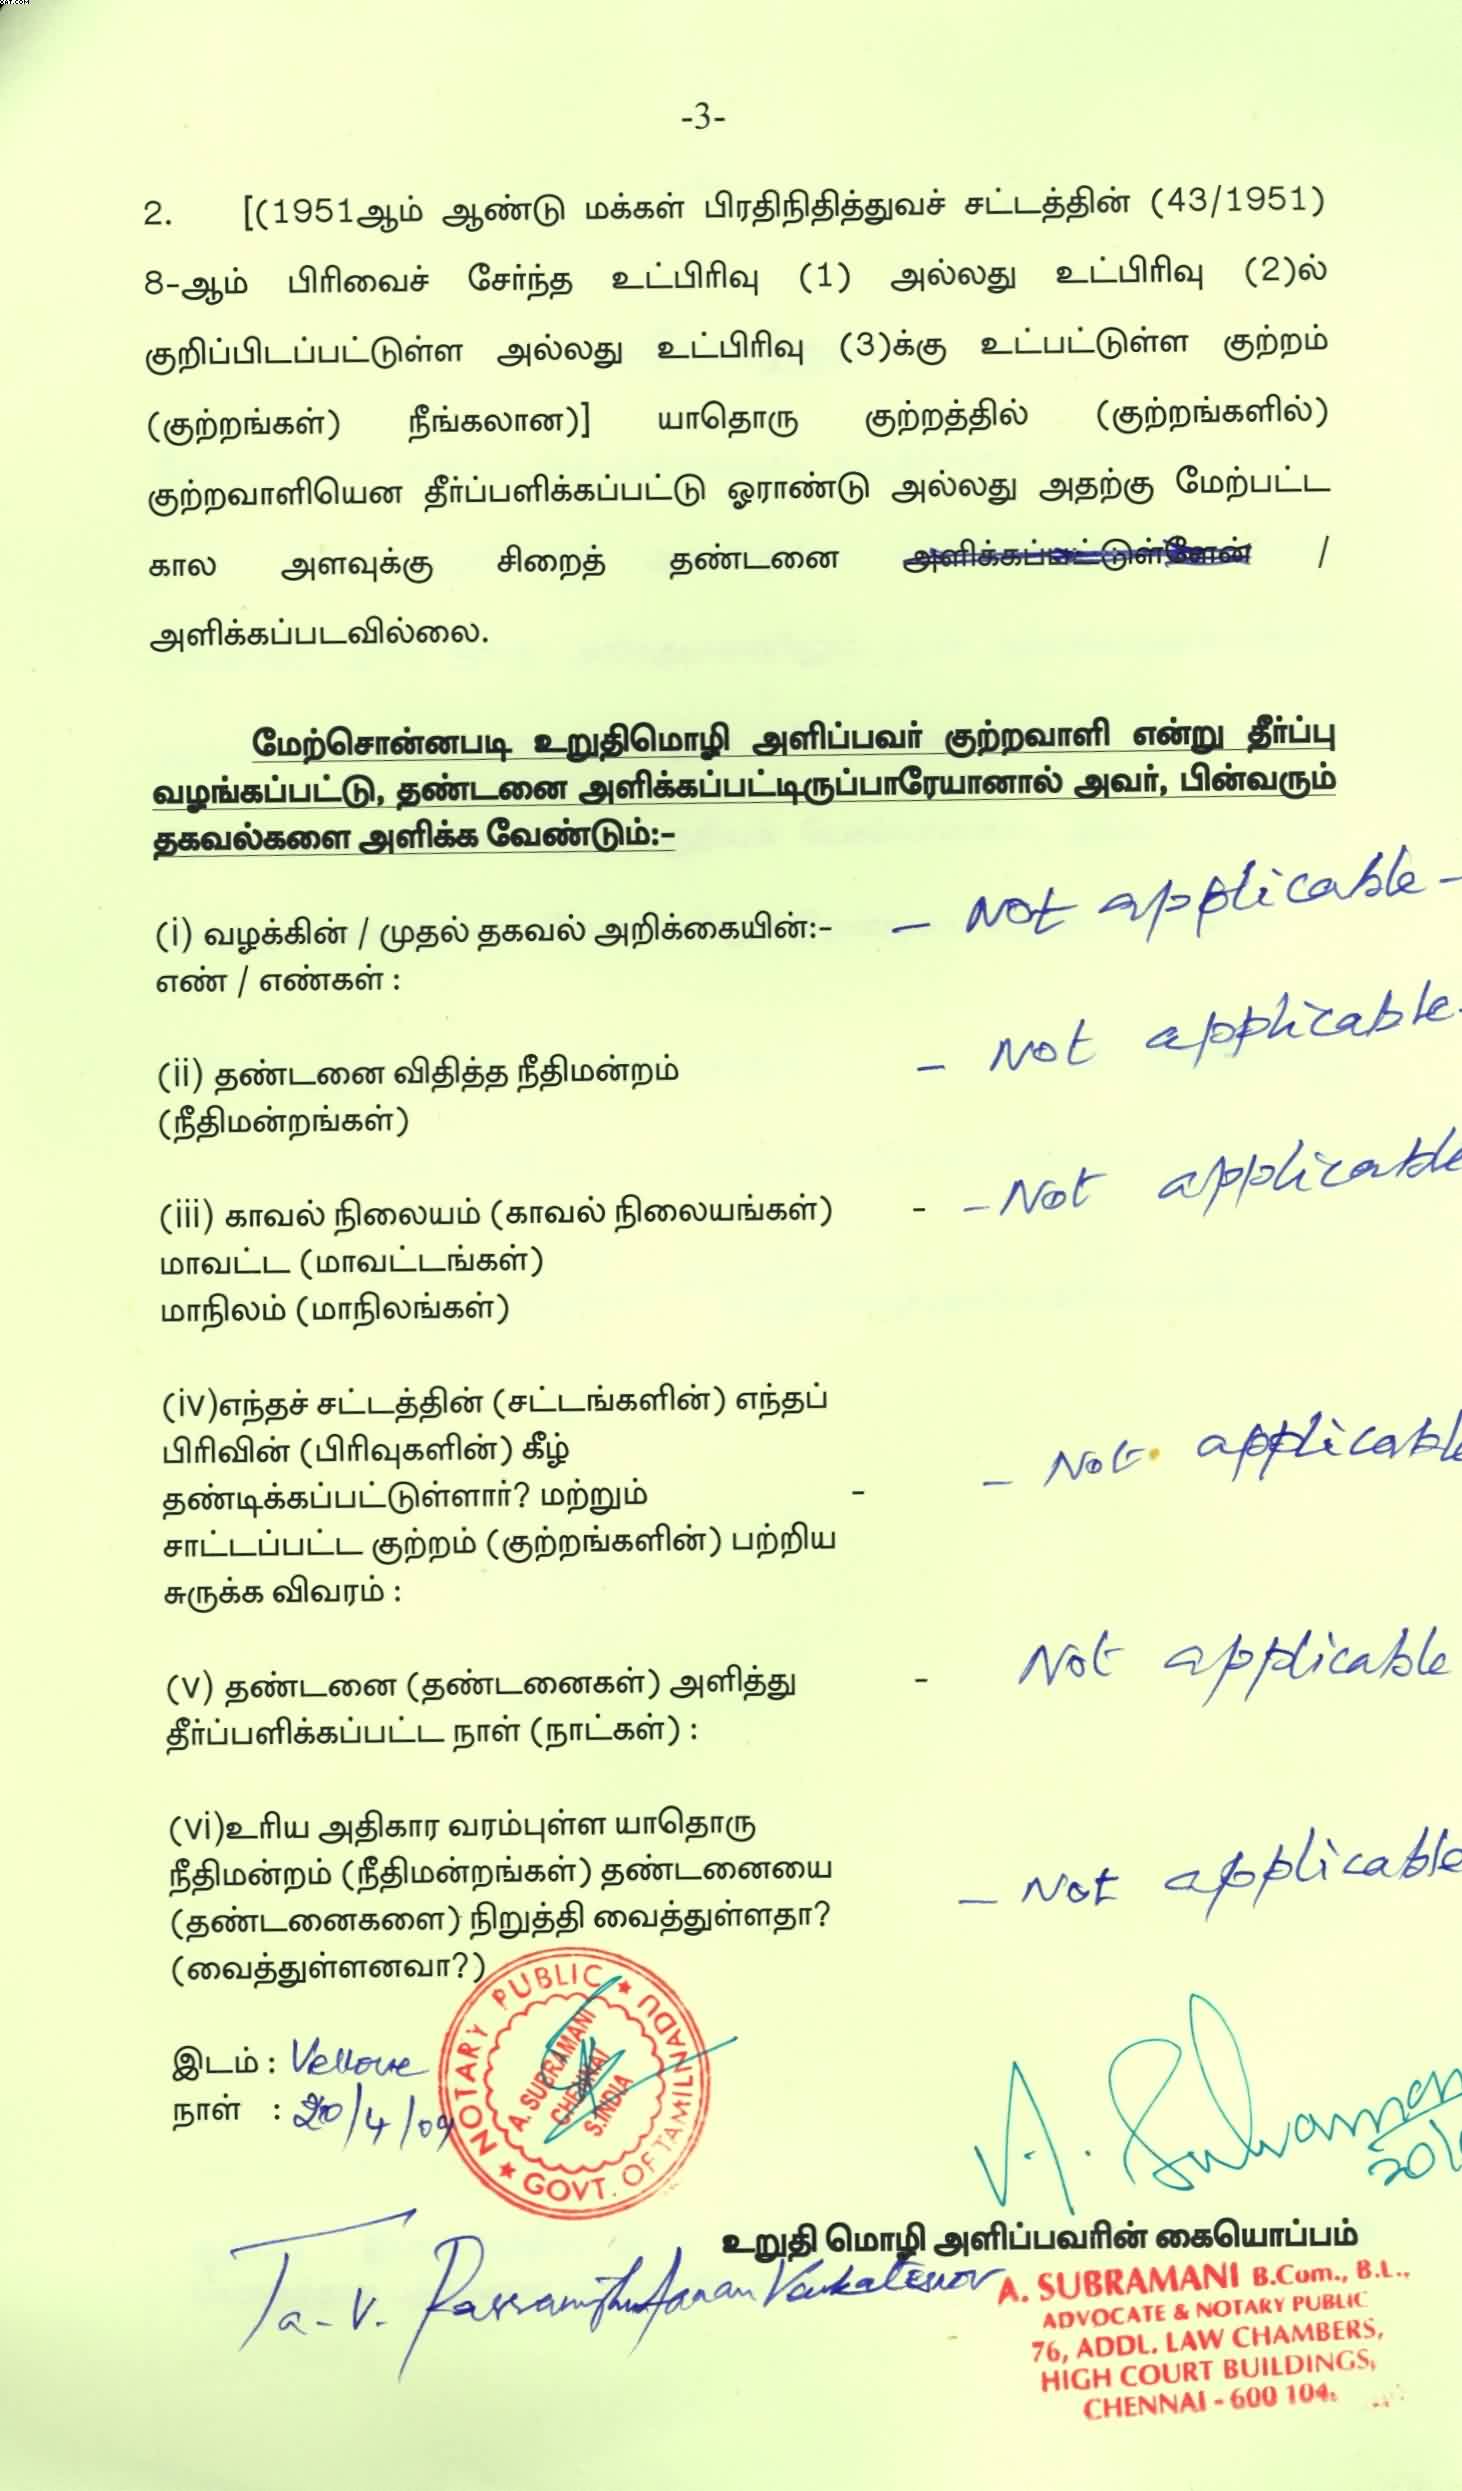 -3-
2. [(1951ஆம் ஆண்டு மக்கள் பிரதிநிதித்துவச் சட்டத்தின் (43/1951)
8-ஆம் பிரிவைச் சேர்ந்த உட்பிரிவு (1) அல்லது உட்பிரிவு (2)ல்
குறிப்பிடப்பட்டுள்ள அல்லது உட்பிரிவு (3)க்கு உட்பட்டுள்ள குற்றம்
(குற்றங்கள்) நீங்கலான)] யாதொரு குற்றத்தில் (குற்றங்களில்)
குற்றவாளியென தீர்ப்பளிக்கப்பட்டு ஓராண்டு அல்லது அதற்கு மேற்பட்ட
கால அளவுக்கு சிறைத் தண்டனை அளிக்கப்பட்டுள்ளேன் /
அளிக்கப்படவில்லை.
மேற்சொன்னபடி உறுதிமொழி அளிப்பவர் குற்றவாளி என்று தீர்ப்பு
வழங்கப்பட்டு, தண்டனை அளிக்கப்பட்டிருப்பாரேயானால் அவர், பின்வரும்
தகவல்களை அளிக்க வேண்டும்:-
(i) வழக்கின் / முதல் தகவல் அறிக்கையின்:- - Not applicable -
எண் / எண்கள் :
(ii) தண்டனை விதித்த நீதிமன்றம் - Not applicable -
(நீதிமன்றங்கள்)
(iii) காவல் நிலையம் (காவல் நிலையங்கள்) - - Not applicable
மாவட்ட (மாவட்டங்கள்)
மாநிலம் (மாநிலங்கள்)
(iv)எந்தச் சட்டத்தின் (சட்டங்களின்) எந்தப்
பிரிவின் (பிரிவுகளின்) கீழ் - Not applicable
தண்டிக்கப்பட்டுள்ளார்? மற்றும் -
சாட்டப்பட்ட குற்றம் (குற்றங்களின்) பற்றிய
சுருக்க விவரம் :
(v) தண்டனை (தண்டனைகள்) அளித்து - Not applicable
தீர்ப்பளிக்கப்பட்ட நாள் (நாட்கள்) :
(vi)உரிய அதிகார வரம்புள்ள யாதொரு
நீதிமன்றம் (நீதிமன்றங்கள்) தண்டனையை - Not applicable
(தண்டனைகளை) நிறுத்தி வைத்துள்ளதா?
(வைத்துள்ளனவா?)
இடம் : Vellore
நாள் : 20/4/09
NOTARY PUBLIC ★ TAMILNADU
GOVT. OF
A. SUBRAMANI
CHENNAI
S.INDIA
A. Subramani
உறுதி மொழி அளிப்பவரின் கையொப்பம்
A. SUBRAMANI B.Com., B.L.,
ADVOCATE & NOTARY PUBLIC
76, ADDL. LAW CHAMBERS,
HIGH COURT BUILDINGS,
CHENNAI - 600 104.